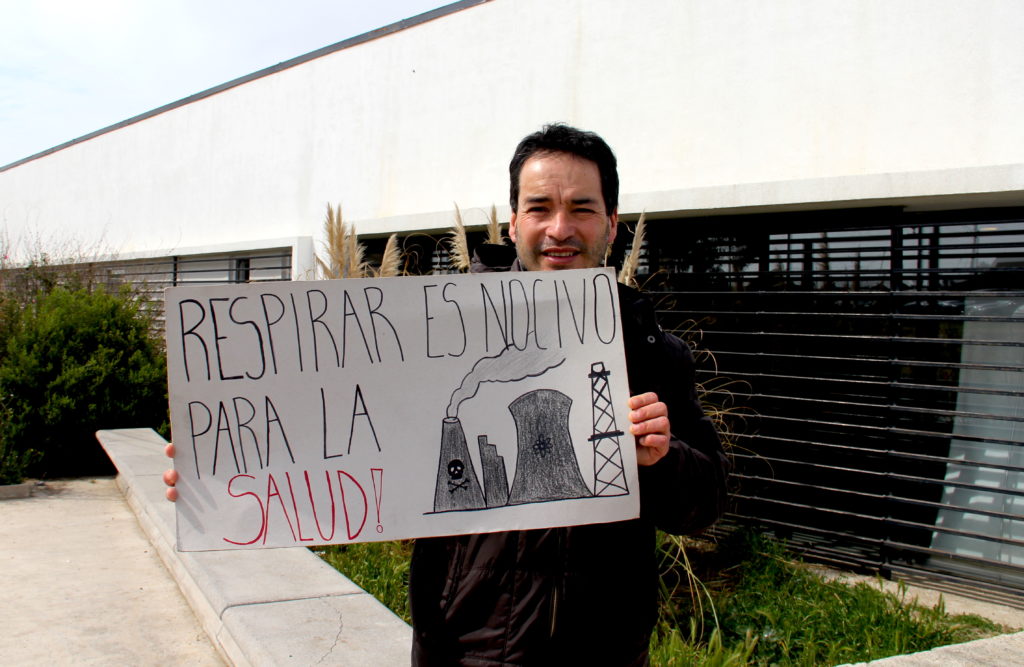 RESPIRAR ES NOCIVO
PARA LA
SALUD!